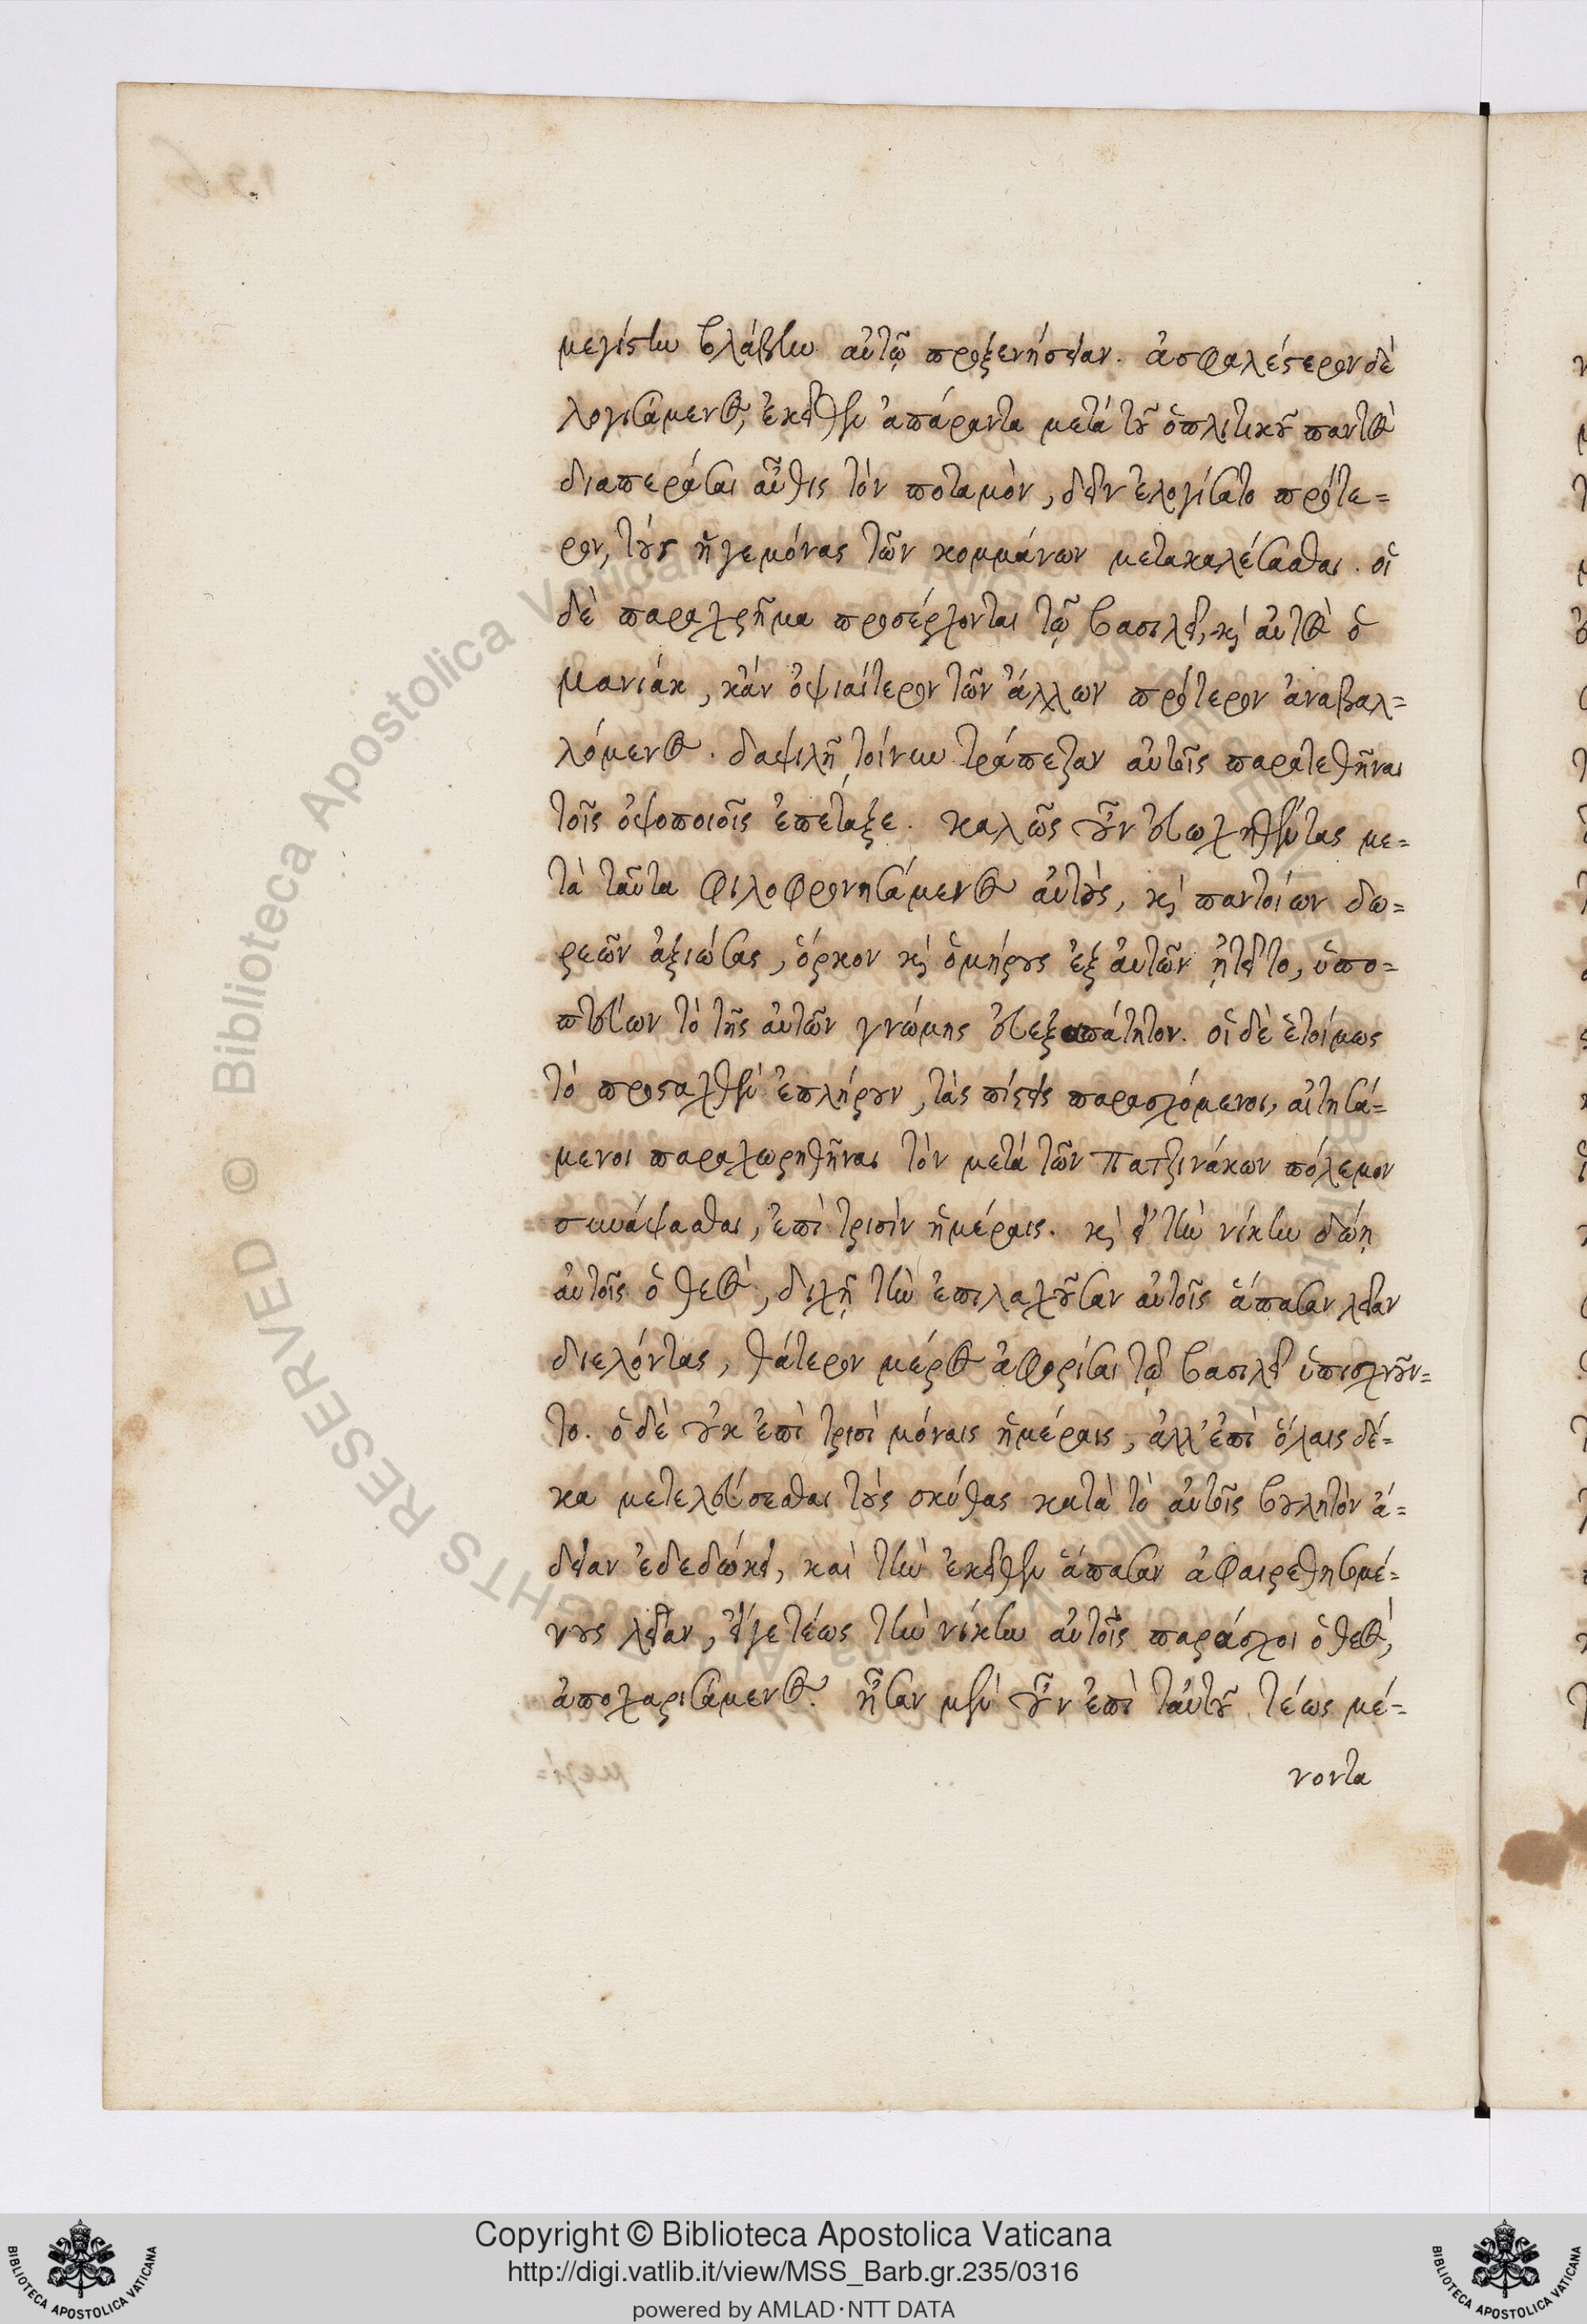 μεγίστην βλάβην αὐτῷ προξενήσειαν. ἀσφαλέστερον δὲ
λογισάμενος, ἐκεῖθεν ἀπάραντα μετὰ τοῦ ὁπλιτικοῦ παντὸς
διαπεράσαι αὖθις τὸν ποταμὸν, δεῖν ἐλογίσατο πρότε=
ρον, τοὺς ἡγεμόνας τῶν κομμάνων μετακαλέσασθαι. οἱ
δὲ παραχρῆμα προσέρχονται τῷ βασιλεῖ, καὶ αὐτὸς ὁ
μανιάκ, κἂν ὀψιαίτερον τῶν ἄλλων πρότερον ἀναβαλ=
λόμενος. δαψιλῆ τοίνυν τράπεζαν αὐτοῖς παρατεθῆναι
τοῖς ὀψοποιοῖς ἐπέταξε. καλῶς οὖν εὐωχηθέντας με=
τὰ ταῦτα φιλοφρονησάμενος αὐτοὺς, καὶ παντοίων δω=
ρεῶν ἀξιώσας, ὅρκον καὶ ὁμήρους ἐξ αὐτῶν ᾐτεῖτο, ὑπο=
πτεύων τὸ τῆς αὐτῶν γνώμης εὐεξαπάτητον. οἱ δὲ ἑτοίμως
τὸ προσταχθὲν ἐπλήρουν, τὰς πίστεις παρασχόμενοι, αἰτησά=
μενοι παραχωρηθῆναι τὸν μετὰ τῶν πατζινάκων πόλεμον
συνάψασθαι, ἐπὶ τρισὶν ἡμέραις. καὶ εἰ τὴν νίκην δώῃ
αὐτοῖς ὁ θεὸς, διχῇ τὴν ἐπιλαχοῦσαν αὐτοῖς ἅπασαν λείαν
διελόντας, θάτερον μέρος ἀφορίσαι τῷ βασιλεῖ ὑπισχνοῦν=
το. ὁ δὲ οὐκ ἐπὶ τρισὶ μόναις ἡμέραις, ἀλλ' ἐπὶ ὅλαις δέ=
κα μετελεύσεσθαι τοὺς σκύθας κατὰ τὸ αὐτοῖς βουλητὸν ἄ=
δειαν ἐδεδώκει, καὶ τὴν ἐκεῖθεν ἅπασαν ἀφαιρεθησομέ=
νους λείαν, εἴγε τέως τὴν νίκην αὐτοῖς παράσχοι ὁ θεὸς,
ἀποχαρισάμενος. ἦσαν μὲν οὖν ἐπὶ ταὐτοῦ τέως μέ=
νοντα
Copyright © Biblioteca Apostolica Vaticana
http://digi.vatlib.it/view/MSS_Barb.gr.235/0316
powered by AMLAD·NTT DATA